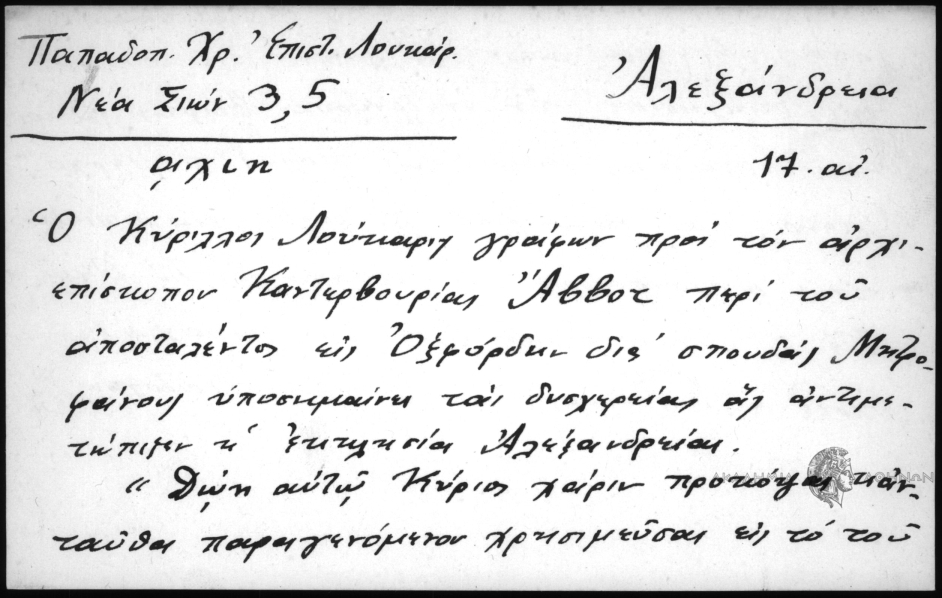 Παπαδοπ. Χρ. Ἐπιστ. Λουκάρ.
Νέα Σιών 3,5
Ἀλεξάνδρεια
αχιη
17. αἰ.
Ὁ Κύριλλος Λούκαρις γράφων πρός τόν ἀρχι-
επίσκοπον Καντερβουρίας Ἄββοτ περί τοῦ
ἀποσταλέντος εἰς Ὀξφόρδην διά σπουδάς Μητρο-
φάνους ὑποσημαίνει τάς δυσχερείας ἅς ἀντιμε-
τώπιζεν ἡ ἐκκλησία Ἀλεξανδρείας.
" Δώῃ αὐτῷ Κύριος χάριν προκόψαι κἀν-
ταῦθα παραγενόμενον χρησιμεῦσαι εἰς τό τοῦ